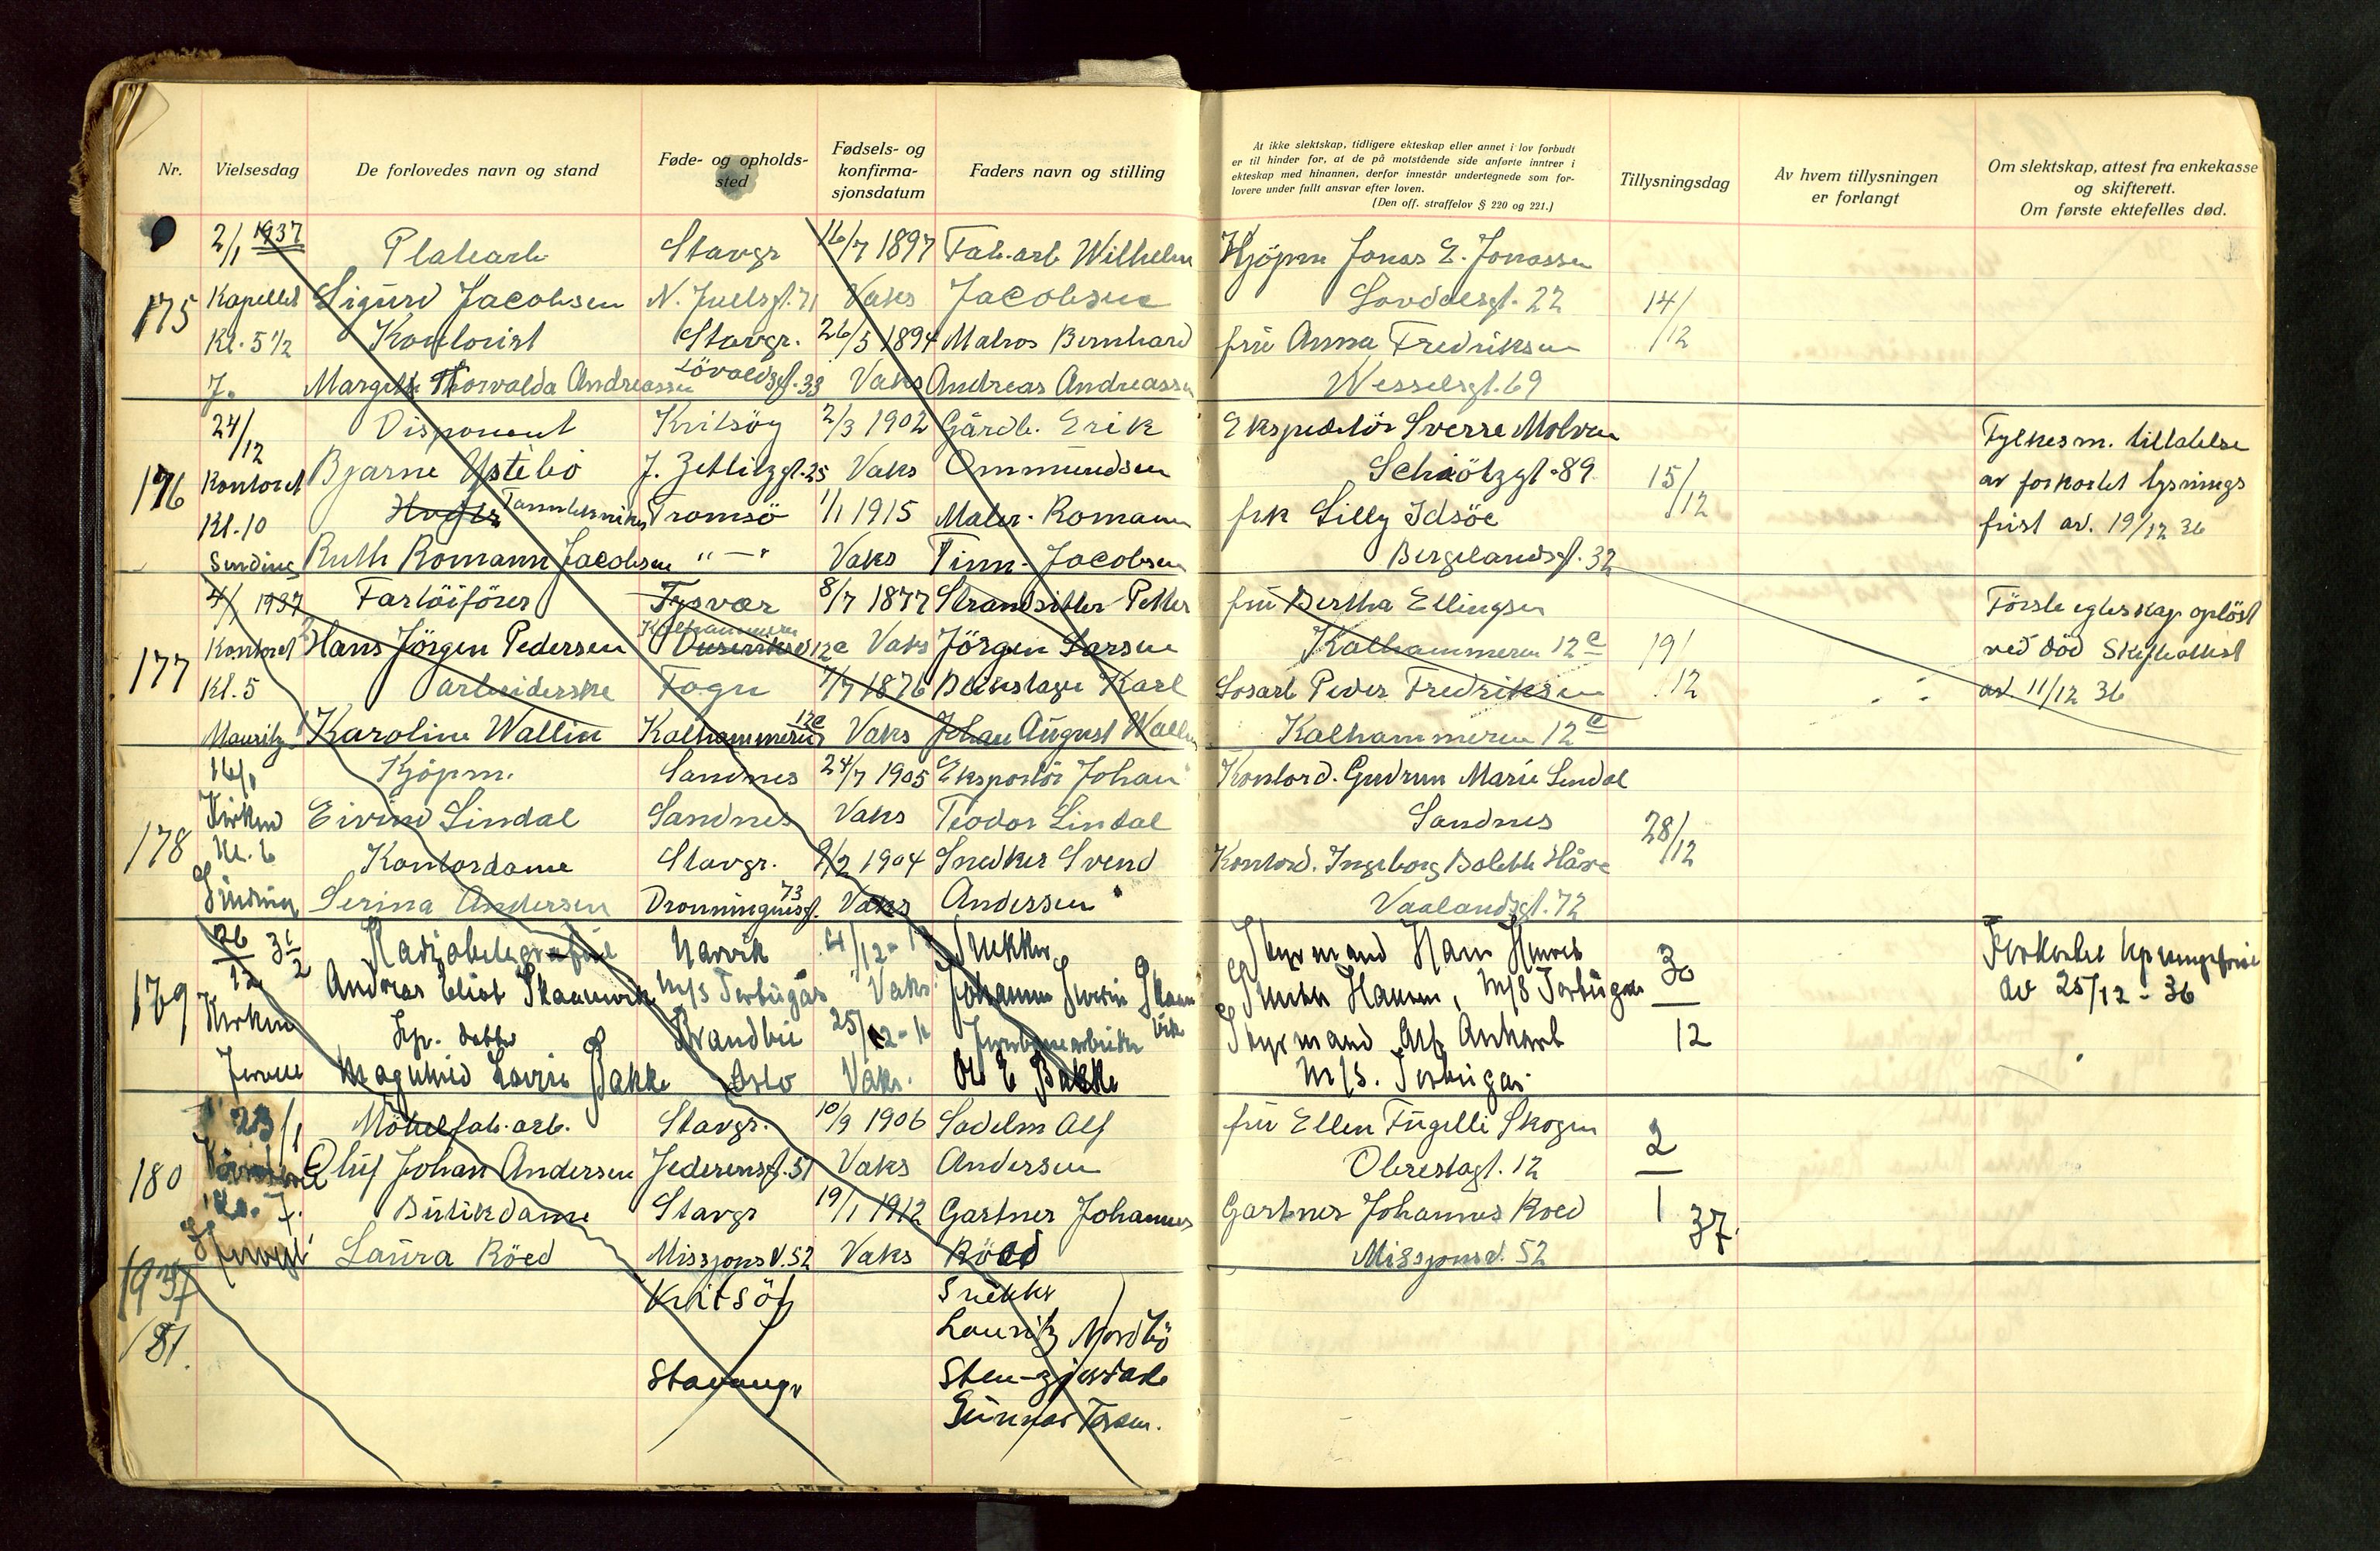 Nr. Vielsesdag De forlovedes navn og stand Føde- og opholds-sted Fødsels- og konfirma-sjonsdatum Faders navn og stilling
At ikke slektskap, tidligere ekteskap eller annet i lov forbudt
er til hinder for, at de på motstående side anførte inntrer i
ekteskap med hinannen, derfor innestår undertegnede som for-
lovere under fullt ansvar efter loven.
(Den off. straffelov § 220 og 221.)
Tillysningsdag
Av hvem tillysningen
er forlangt
Om slektskap, attest fra enkekasse
og skifterett.
Om første ektefelles død.
2/1 1937 Platearb Stavgr 16/7 1897 Fab.arb Wilhelm Kjöpm Jonas E. Jonassen
175 Kapellet Sigurd Jacobsen N. Juelsgt. 71 Vaks Jacobsen Lovdalsgt. 22 14/12
Kl. 5 1/2 Kontorist Stavgr. 26/5 1894 Matros Bernhard fru Anna Fredriksen
J. Thorvalda Andreassen Lövoldsgt. 33 Vaks Andreas Andreassen Wesselsgt. 69
24/12 Disponent Kvitsöy 2/3 1902 Gårdb. Erik Ekspeditör Sverre Molven Fylkesm. tillatelse
176 Kontoret Bjarne Ystebö J. Zetlitzgt. 25 Vaks Ommundsen Schiötzgt. 89 15/12 av forkortet lysnings
Kl. 10 Tanntekniker Tromsö 1/1 1915 Maler. Romann frk Lilly Idsöe frist av. 19/12 36
Sinding Ruth Romann Jacobsen " — " Vaks Finn Jacobsen Bergelandsgt. 32
4/1 1937 Fartöiförer Tysvær 8/7 1877 Strandsitter Petter fru Bertha Ellingsen Förste egteskap oplöst
177 Kontoret Hans Jörgen Pedersen Kalhammeren 12c Vaks Jörgen Larsen Kalhammeren 12c 19/12 ved död Skifteattest
Kl. 5 arbeiderske Fogn 7/7 1876 Karl Losarb Peder Fredriksen av 11/12 36
Mauritz Karoline Wallin Kalhammeren 12c Vaks Johan August Wallin Kalhammeren 12c
16/1 Kjöpm. Sandnes 24/7 1905 Eksportör Johan Kontord. Gudrun Marie Lindal
178 Kirken Eivind Lindal Sandnes Vaks Teodor Lindal Sandnes 28/12
Kl. 6 Kontordame Stavgr. 9/2 1904 Snedker Svend Kontord. Ingeborg Bolette Håve
Sinding Serina Andersen Dronningensgt. 73 Vaks Andersen Vaalandsgt. 72
26/12 Radiotelegrafist Narvik 4/12 Snekker Styrmand 30/12 Forkortet
179 Kirken Andreas Eliot M/S Vaks. Johannes Hansen, M/S av 25/12 - 36
25/12 Styrmand Alf
Bakke Oslo Vaks. Ole E Bakke M/S.
23/1 Möbelfab.arb. Stavgr. 10/9 1906 Sadelm Alf fru Ellen Fugelli Skogen 2/1 37.
180 Oluf Johan Andersen Jederensgt. 51 Vaks Andersen
Kl. 7. Butikdame Stavgr 19/1 1912 Gartner Johannes Gartner Johannes Roed
Laura Röed Missjonsv. 52 Vaks Röed Missjonsv. 52
1937 Kvitsöy Snekker
181. Lauritz Nordbö
Stavanger
Gunnar